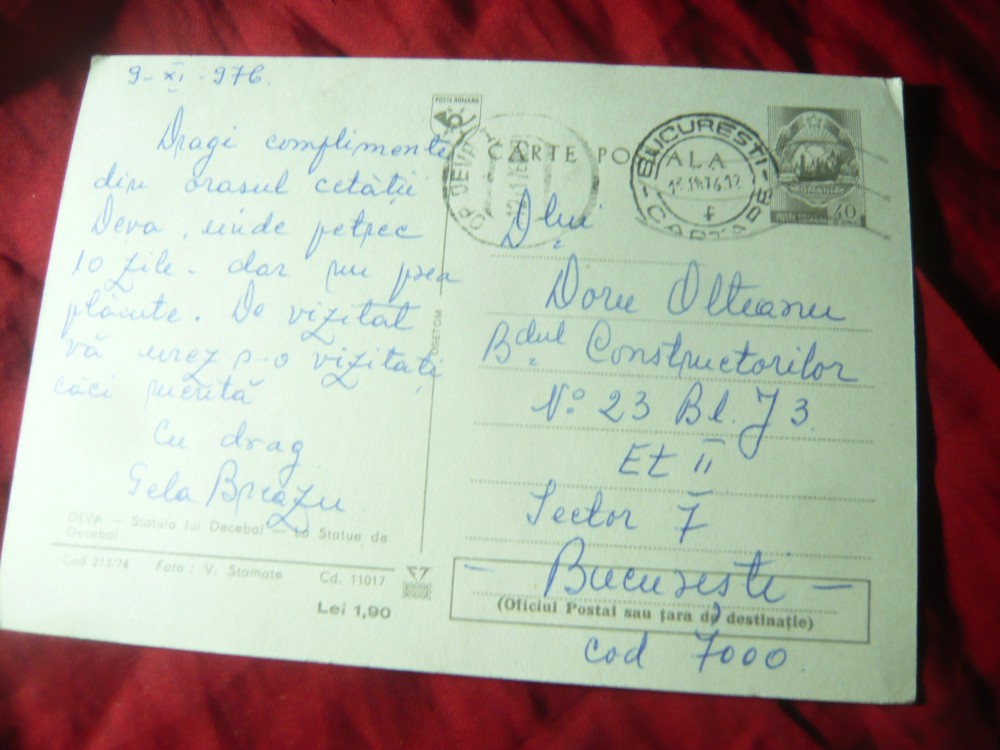 9-XI-976.
Dragi complimente
din orașul cetății
Deva, unde petrec
10 zile - dar nu prea
plăcute. De vizitat
vă urez s-o vizitați
căci merită
Cu drag
Gela Breazu
DEVA — Statuia lui Decebal — La Statue de
Decebal
Cod 213/74 Foto : V. Stamate Cd. 11017
Lei 1,90
POSTA ROMANA
CARTE POȘTALĂ
BUCUREȘTI
CARTARE
DEVA
40
D-lui
Doru Olteanu
Bdul Constructorilor
No 23 Bl. J 3
Et II
Sector 7
— București —
(Oficiul Postal sau țara de destinație)
cod 7000